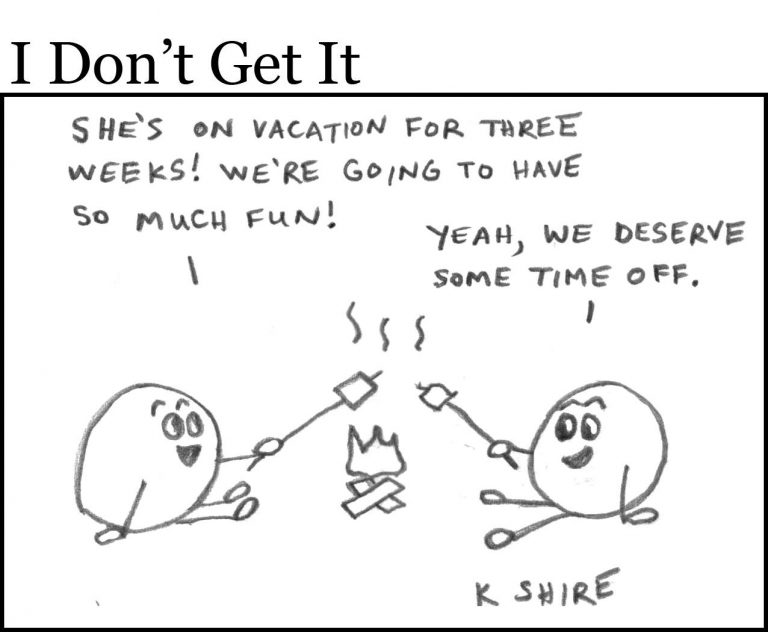 I Don’t Get It
SHE'S ON VACATION FOR THREE
WEEKS! WE'RE GOING TO HAVE
SO MUCH FUN!
YEAH, WE DESERVE
SOME TIME OFF.
K SHIRE